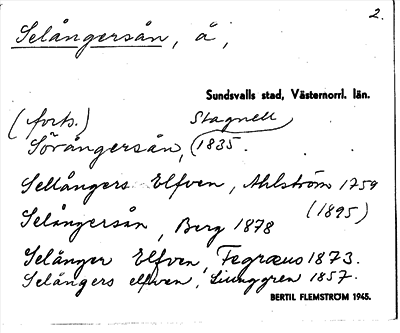 2.
Selångersån, å,
Sundsvalls stad, Västernorrl. län.
(forts.) Stagnell
Sörångersån, (1835.
Sellångers Elfven, Ahlström 1759
(1895)
Selångersån, Berg 1878
Selånger Elfven, Fegræus 1873.
Selångers elfven, Ljunggren 1857.
BERTIL FLEMSTRÖM 1945.